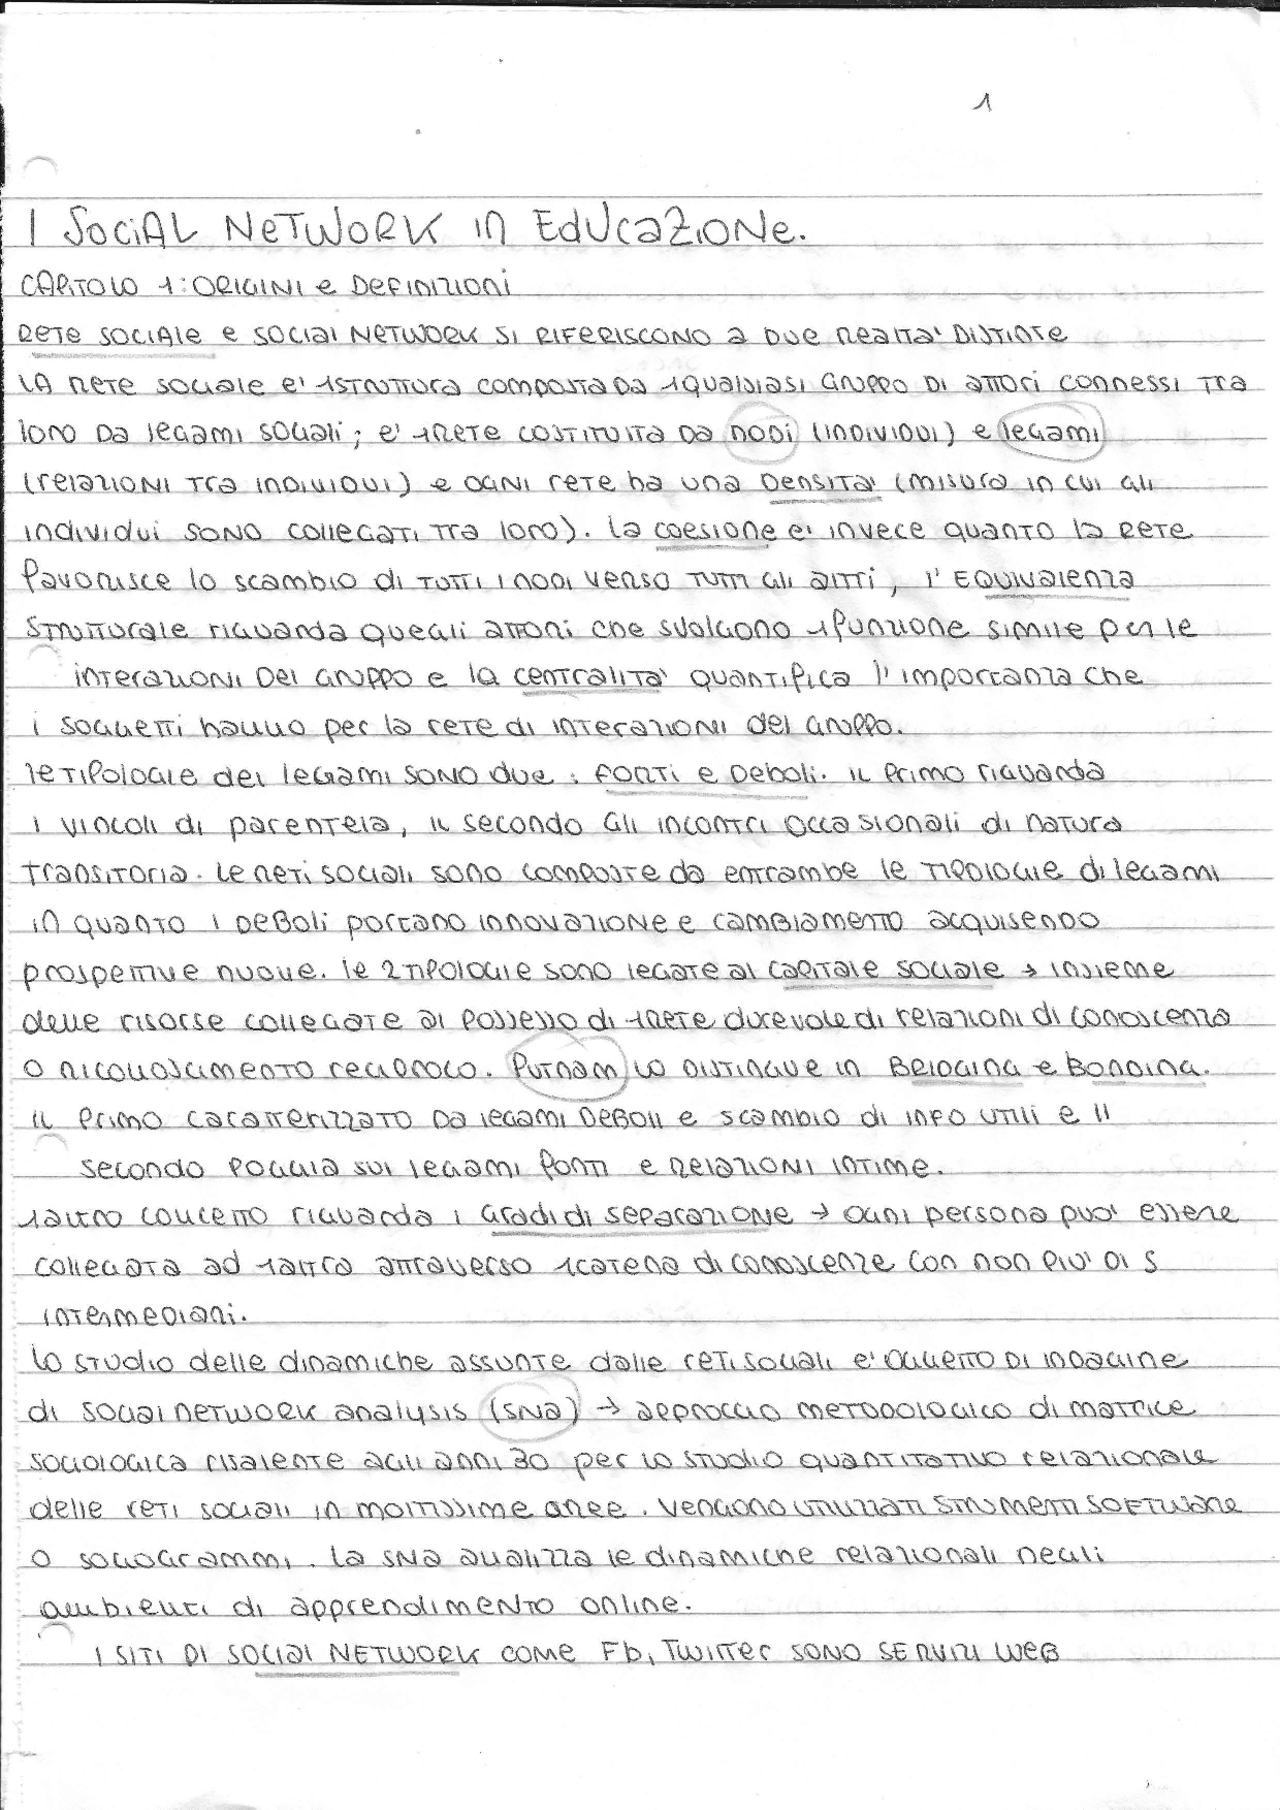 1
I SOCIAL NETWORK IN EDUCAZIONE.
CAPITOLO 1: ORIGINI e DEFINIZIONI
RETE SOCIALE e SOCIAL NETWORK SI RIFERISCONO a DUE REALTA' DISTINTE
LA RETE SOCIALE E' 1STRUTTURA COMPOSTA DA 1QUALSIASI GRUPPO DI ATTORI CONNESSI TRA
LORO DA LEGAMI SOCIALI; E' 1RETE COSTITUITA DA NODI (INDIVIDUI) e LEGAMI
(RELAZIONI TRA INDIVIDUI) e OGNI RETE ha una DENSITA' (MISURA IN CUI GLI
INDIVIDUI SONO COLLEGATI TRA LORO). La COESIONE e' INVECE QUANTO LA RETE
favorisce lo scambio di TUTTI I NODI VERSO TUTTI GLI ALTRI, l'EQUIVALENZA
STRUTTURALE riguarda quegli attori che svolgono 1funzione simile per le
INTERAZIONI DEL GRUPPO e la CENTRALITA' quantifica l'importanza che
i soggetti hanno per la rete di interazioni del gruppo.
le TIPOLOGIE dei legami SONO due: FORTI e DEBOLI. Il primo riguarda
i vincoli di parentela, il secondo gli incontri occasionali di natura
transitoria. Le reti sociali sono composte da entrambe le tipologie di legami
in quanto i DEBOLI portano innovazione e cambiamento acquisendo
prospettive nuove. le 2 tipologie sono legate al capitale sociale → insieme
delle risorse collegate al possesso di 1rete durevole di relazioni di conoscenza
o riconoscimento reciproco. Putnam lo distingue in BRIDGING e BONDING.
Il primo caratterizzato da legami DEBOLI e scambio di info utili e il
secondo poggia sui legami forti e relazioni intime.
1altro concetto riguarda i gradi di separazione → ogni persona puo' essere
collegata ad 1altra attraverso 1catena di conoscenze con non piu' di 5
intermediari.
Lo studio delle dinamiche assunte dalle reti sociali e' oggetto di indagine
di social network analysis (SNA) → approccio metodologico di matrice
sociologica risalente agli anni 30 per lo studio quantitativo relazionale
delle reti sociali in moltissime aree. Vengono utilizzati strumenti software
o sociogrammi. La SNA analizza le dinamiche relazionali negli
ambienti di apprendimento online.
I SITI DI SOCIAL NETWORK COME Fb, Twitter SONO SERVIZI WEB